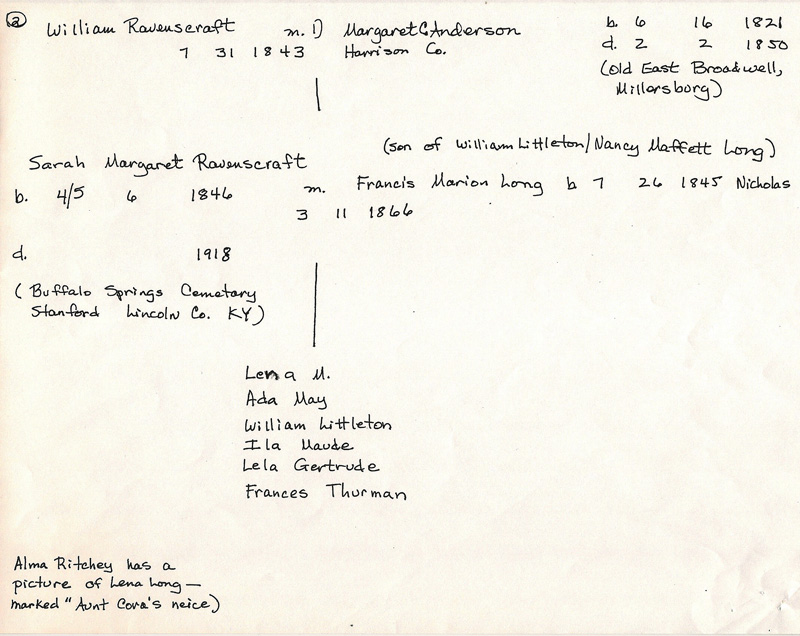 2
William Ravenscraft m. 1) Margaret C Anderson b. 6 16 1821
7 31 1843 Harrison Co. d. 2 2 1850
(Old East Broadwell,
Millersburg)
(son of William Littleton/Nancy Maffett Long)
Sarah Margaret Ravenscraft
b. 4/5 6 1846 m. Francis Marion Long b 7 26 1845 Nicholas
3 11 1866
d. 1918
(Buffalo Springs Cemetary
Stanford Lincoln Co. KY)
Lena M.
Ada May
William Littleton
Ila Maude
Lela Gertrude
Frances Thurman
Alma Ritchey has a
picture of Lena Long —
marked "Aunt Cora's neice)